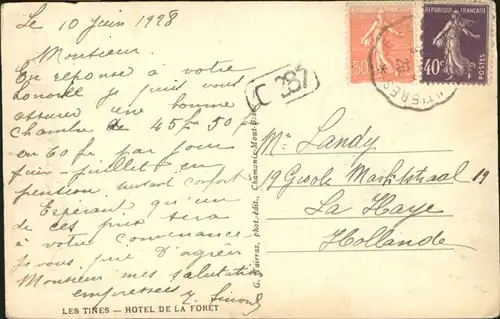 Le 10 Juin 1928
Monsieur
En réponse à votre
honorée je puis vous
assurer une bonne
chambre de 45 fr 50 fr
ou 60 fr par jour
Juin - Juillet en
pension suivant confort
Espérant qu'un
de ces prix sera
à votre convenance
je vous prie d'agréer
Monsieur mes salutations
empressées
LES TINES — HOTEL DE LA FORÊT
G. Tairraz, phot.-édit., Chamonix-Mont-Blanc
C 287
REPUBLIQUE FRANÇAISE
50
REPUBLIQUE FRANÇAISE
40c
POSTES
Mr Landy
19 Groote Marktstraat 19
La Haye
Hollande